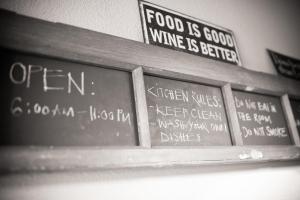 FOOD IS GOOD
WINE IS BETTER
OPEN:
6:00AM - 11:00PM
KITCHEN RULES:
- KEEP CLEAN
- WASH YOUR OWN
DISHES
DO NOT EAT IN
THE ROOM
DO NOT SMOKE